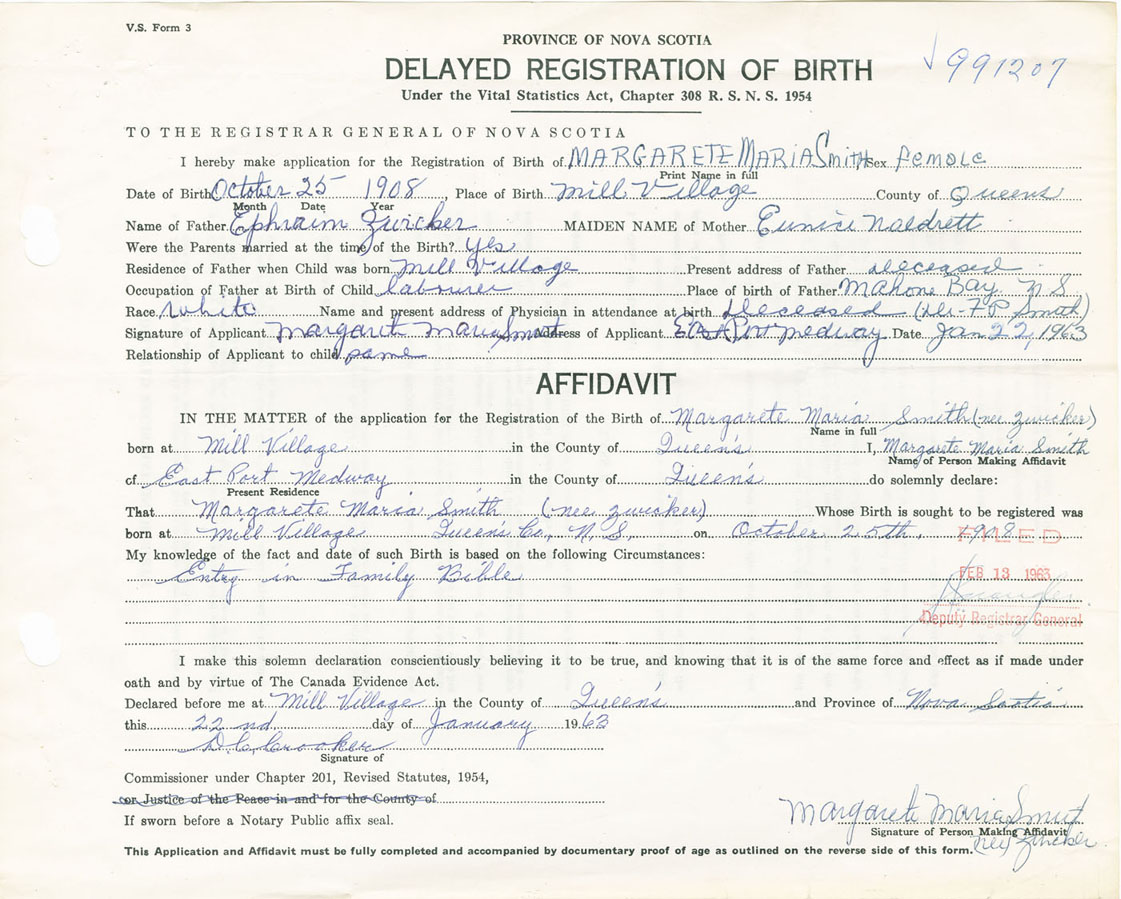 V.S. Form 3
PROVINCE OF NOVA SCOTIA
DELAYED REGISTRATION OF BIRTH
991207
Under the Vital Statistics Act, Chapter 308 R. S. N. S. 1954
TO THE REGISTRAR GENERAL OF NOVA SCOTIA
I hereby make application for the Registration of Birth of MARGARETE MARIA Smith Sex female
Print Name in full
Date of Birth October 25 1908 Place of Birth Mill Village County of Queens
Month Date Year
Name of Father Ephraim Zwicker MAIDEN NAME of Mother Eunice Naldrett
Were the Parents married at the time of the Birth? yes
Residence of Father when Child was born Mill Village Present address of Father deceased
Occupation of Father at Birth of Child labourer Place of birth of Father Mahone Bay, N S
Race White Name and present address of Physician in attendance at birth Deceased (Dr. F P Smith)
Signature of Applicant Margarete Maria Smith Address of Applicant East Port medway Date Jan 22, 1963
Relationship of Applicant to child same
AFFIDAVIT
IN THE MATTER of the application for the Registration of the Birth of Margarete Maria Smith (nee Zwicker)
Name in full
born at Mill Village in the County of Queen's I, Margarete Maria Smith
Name of Person Making Affidavit
of East Port Medway in the County of Queen's do solemnly declare:
Present Residence
That Margarete Maria Smith (nee Zwicker) Whose Birth is sought to be registered was
born at Mill Village Queen's Co., N. S., on October 25th, 1908
FILED
My knowledge of the fact and date of such Birth is based on the following Circumstances:
Entry in Family Bible
FEB 13 1963
Deputy Registrar General
I make this solemn declaration conscientiously believing it to be true, and knowing that it is of the same force and effect as if made under
oath and by virtue of The Canada Evidence Act.
Declared before me at Mill Village in the County of Queen's and Province of Nova Scotia
this 22nd day of January 1963
D. C. Crooker
Signature of
Commissioner under Chapter 201, Revised Statutes, 1954,
or Justice of the Peace in and for the County of
If sworn before a Notary Public affix seal.
Margarete Maria Smith
Signature of Person Making Affidavit
nee Zwicker
This Application and Affidavit must be fully completed and accompanied by documentary proof of age as outlined on the reverse side of this form.